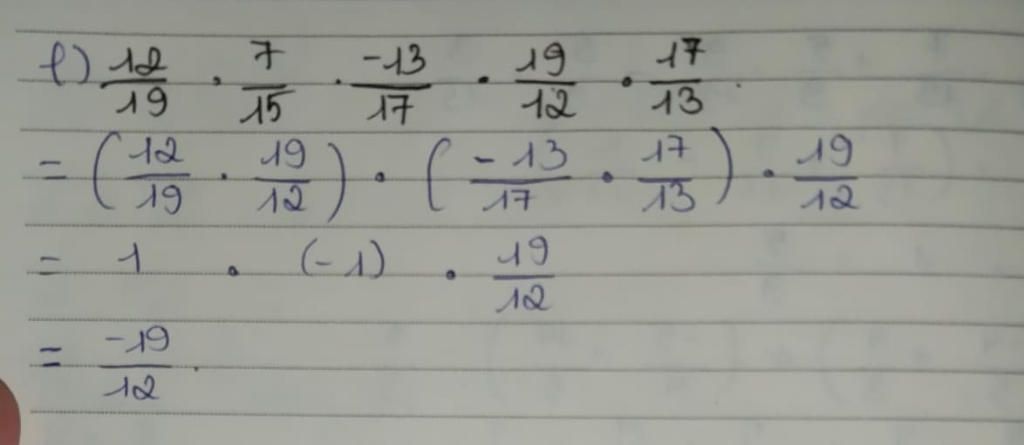 f) 12/19 . 7/15 . -13/17 . 19/12 . 17/13 .
= (12/19 . 19/12) . (-13/17 . 17/13) . 19/12
= 1 . (-1) . 19/12
= -19/12 .